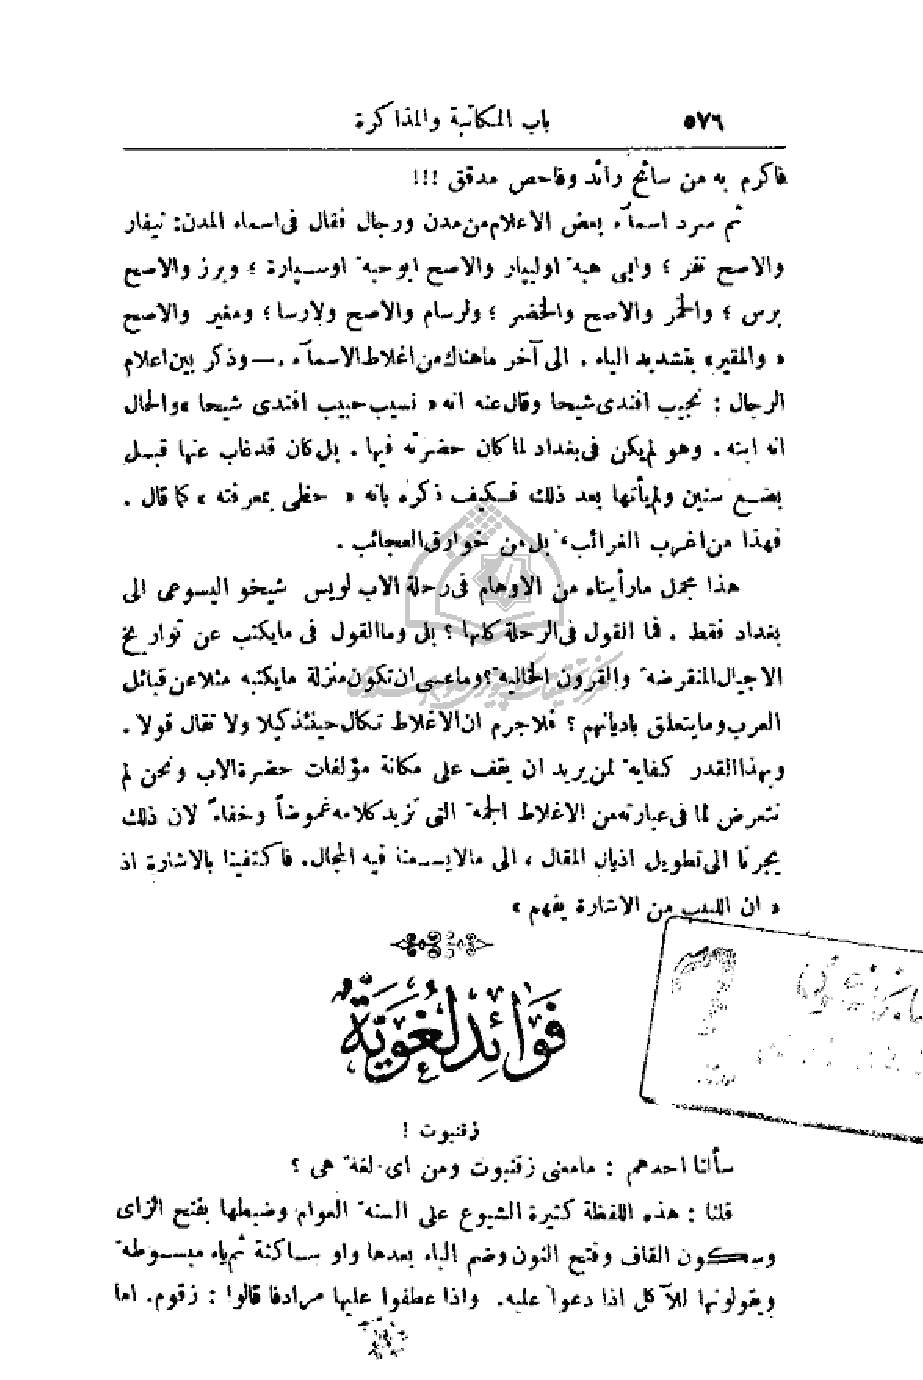 ٥٧٦ باب المكاتبة والمذاكرة
فاكرم به من سائح رائد وفاحص مدقق !!!
ثم سرد اسمآء بعض الاعلام من مدن ورجال فقال فى اسماء المدن: نيفار
والاصح نفر ؛ وابى هبة اوليپار والاصح ابوحبة اوسپارة ؛ وبرز والاصح
برس ؛ والخمر والاصح والخضر ؛ ولرسام والاصح ولارسا ؛ ومغير والاصح
« والمقير» بتشديد الياء . الى آخر ماهناك من اغلاط الاسمآء . — وذكر بين اعلام
الرجال : نجيب افندى شيحا وقال عنه انه « نسيب حبيب افندى شيحا » والحال
انه ابنه . وهو لم يكن فى بغداد لما كان حضرته فيها . بل كان قد غاب عنها قبل
بضع سنين ولم يأتها بعد ذلك فكيف ذكره بانه « حظى بمعرفته » كما قال .
فهذا من اغرب الغرائب ، بل من خوارق العجائب .
هذا مجمل مارأيناه من الاوهام فى رحلة الاب لويس شيخو اليسوعى الى
بغداد فقط . فما القول فى الرحلة كلها ؟ بلى وما القول فى مايكتب عن تواريخ
الاجيال المنقرضة والقرون الخالية ؟ وماعسى ان تكون منزلة مايكتبه مثلا عن قبائل
العرب ومايتعلق باديانهم ؟ فلاجرم ان الاغلاط تكال حينئذ كيلا ولا تقال قولا .
وبهذا القدر كفاية لمن يريد ان يقف على مكانة مؤلفات حضرة الاب ونحن لم
نتعرض لما فى عبارته من الاغلاط الجمة التى تزيد كلامه غموضاً وخفاءً لان ذلك
يجرنا الى تطويل اذيال المقال ، الى مالايسعنا فيه المجال. فاكتفينا بالاشارة اذ
« ان اللبيب من الاشارة يفهم »
فَوَائِد لُغَوِيَّةٌ
زقنبوت !
سألنا احدهم : مامعنى زقنبوت ومن اى لغة هى ؟
قلنا : هذه اللفظة كثيرة الشيوع على السنة العوام وضبطها بفتح الزاى
وسكون القاف وفتح النون وضم الباء بعدها واو ساكنة ثم ياء مبسوطة
ويقولونها للآكل اذا دعوا عليه. واذا عطفوا عليها مرادفا قالوا : زقوم. اما